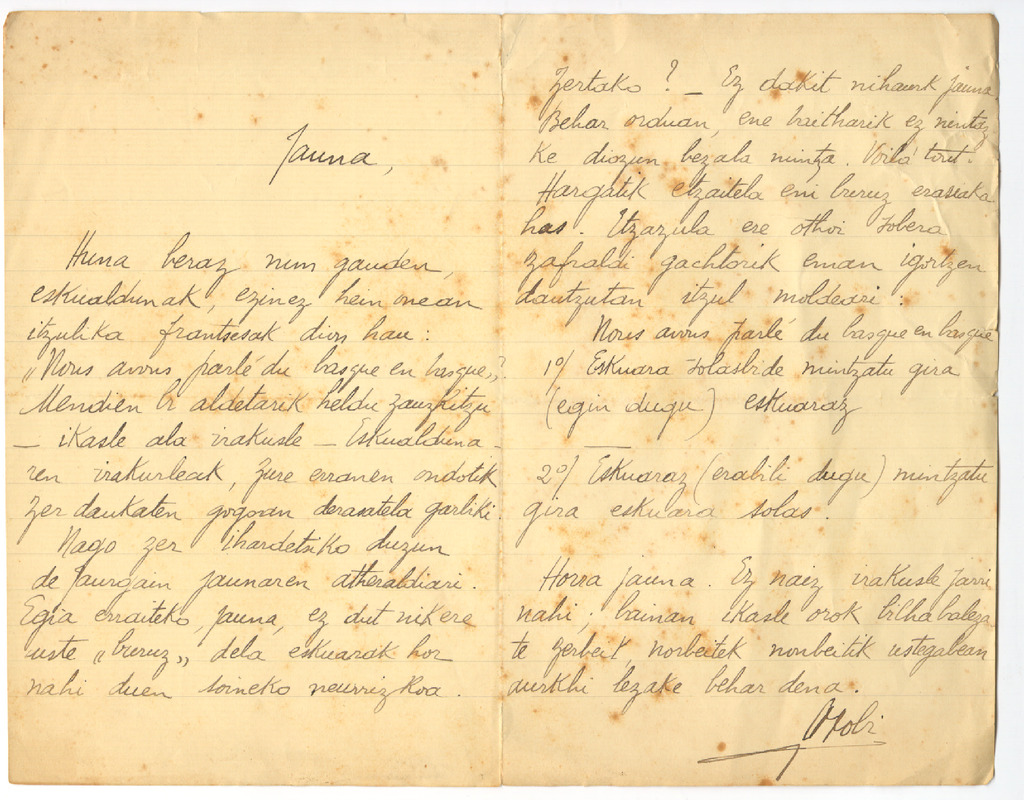 Jauna,
Huna beraz nun gauden,
eskualdunak, ezinez hein onean
itzulika frantsesak dion hau:
"Nous avons parlé du basque en basque"?
Mendien bi aldetarik heldu zauzkitzu
— ikasle ala irakusle — Eskualduna-
ren irakurleak, zure erranen ondotik
zer daukaten gogoan derasatela garbiki.
Nago zer ihardetsiko duzun
de Jaurgain jaunaren atheraldiari.
Egia erraiteko, jauna, ez dut nik ere
uste "buruz" dela eskuarak hor
nahi duen soineko neurrizkoa.
Zertako? — Ez dakit nihaurk jauna.
Behar orduan, ene baitharik ez nintaz
ke diozun bezala mintza. Voilà tout.
Hargatik etzaitela eni buruz erasiaka
has. Utzazula ere othoi sobera
zafraldi gachtorik eman igortzen
dautzutan itzul moldeari:
Nous avons parlé du basque en basque
1º/ Eskuara solasbide mintzatu gira
(egin dugu) eskuaraz
—
2º/ Eskuaraz (erabili dugu) mintzatu
gira eskuara solas.
Horra jauna. Ez naiz irakusle jarri
nahi; bainan ikasle orok bilha baleza
te zerbeit, norbeitek nonbeitik ustegabean
aurkhi lezake behar dena.
Oxobi